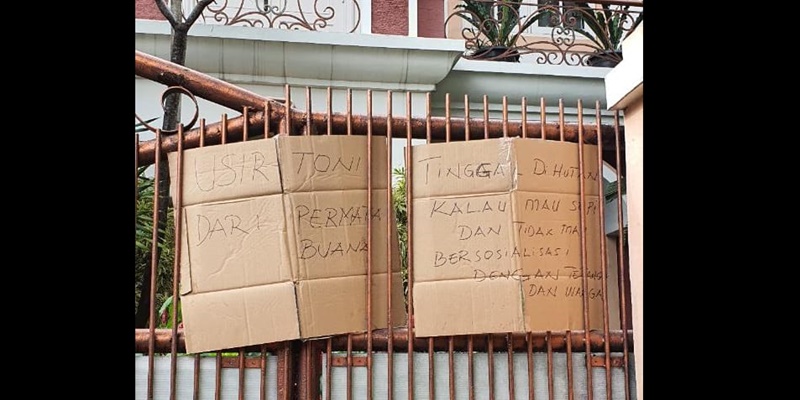 USIR TONI
DARI PERMATA
BUANA
TINGGAL DIHUTAN
KALAU MAU SEPI
DAN TIDAK MAU
BERSOSIALISASI
DENGAN
DAN WARGA